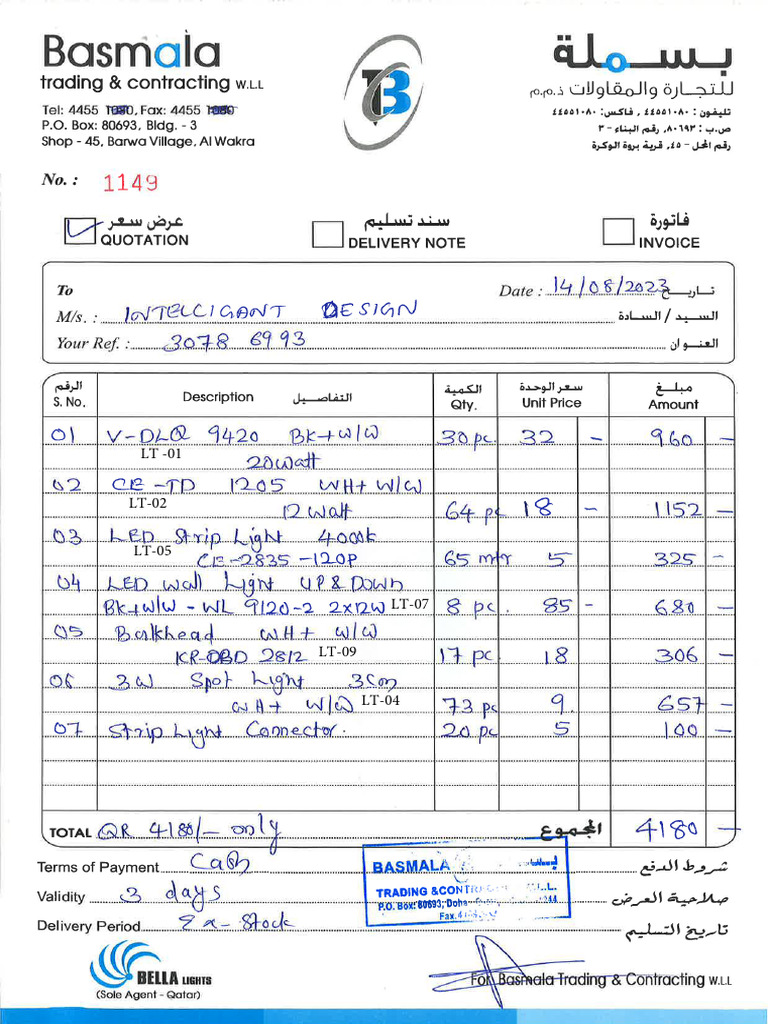 Basmala
بسملة
trading & contracting W.L.L
للتجارة والمقاولات ذ.م.م
Tel: 4455 1080, Fax: 4455 1080
تليفون : ٤٤٥٥١٠٨٠ ، فاكس: ٤٤٥٥١٠٨٠
P.O. Box: 80693, Bldg. - 3
ص.ب : ٨٠٦٩٣، رقم البناء - ٣
Shop - 45, Barwa Village, Al Wakra
رقم المحل - ٤٥، قرية بروة الوكرة
TB
No. : 1149
عرض سعر
QUOTATION
سند تسليم
DELIVERY NOTE
فاتورة
INVOICE
To
Date : 14/08/2023 تاريخ
M/s. : INTELLIGANT DESIGN السيد / السادة
Your Ref. : 3078 6993 العنوان
الرقم التفاصيل الكمية سعر الوحدة مبلغ
S. No. Description Qty. Unit Price Amount
01 V-DLQ 9420 BK+W/W 30 pc 32 - 960 -
LT -01
20watt
02 CE-TD 1205 WH+ W/W
LT-02 12 watt 64 pc 18 - 1152 -
03 LED Strip Light 4000k
LT-05 CE-2835-120P 65 mtr 5 325 -
04 LED Wall Light UP & Down
BK+W/W - WL 9120-2 2x12W LT-07 8 pc. 85 - 680 -
05 Barkhead WH+ W/W
KR-DBD 2812 LT-09 17 pc. 18 306 -
06 3W Spot Light 3cm
WH+ W/W LT-04 73 pc 9. 657 -
07 Strip Light Connector. 20 pc 5 100 -
TOTAL QR 4180/- only المجموع 4180 -
Terms of Payment Cash شروط الدفع
Validity 3 days صلاحية العرض
Delivery Period Ex-Stock تاريخ التسليم
BASMALA
TRADING &CONTR W.L.L.
P.O. Box: 80693, Doha
Fax.4
BELLA LIGHTS
(Sole Agent - Qatar)
For Basmala Trading & Contracting W.L.L